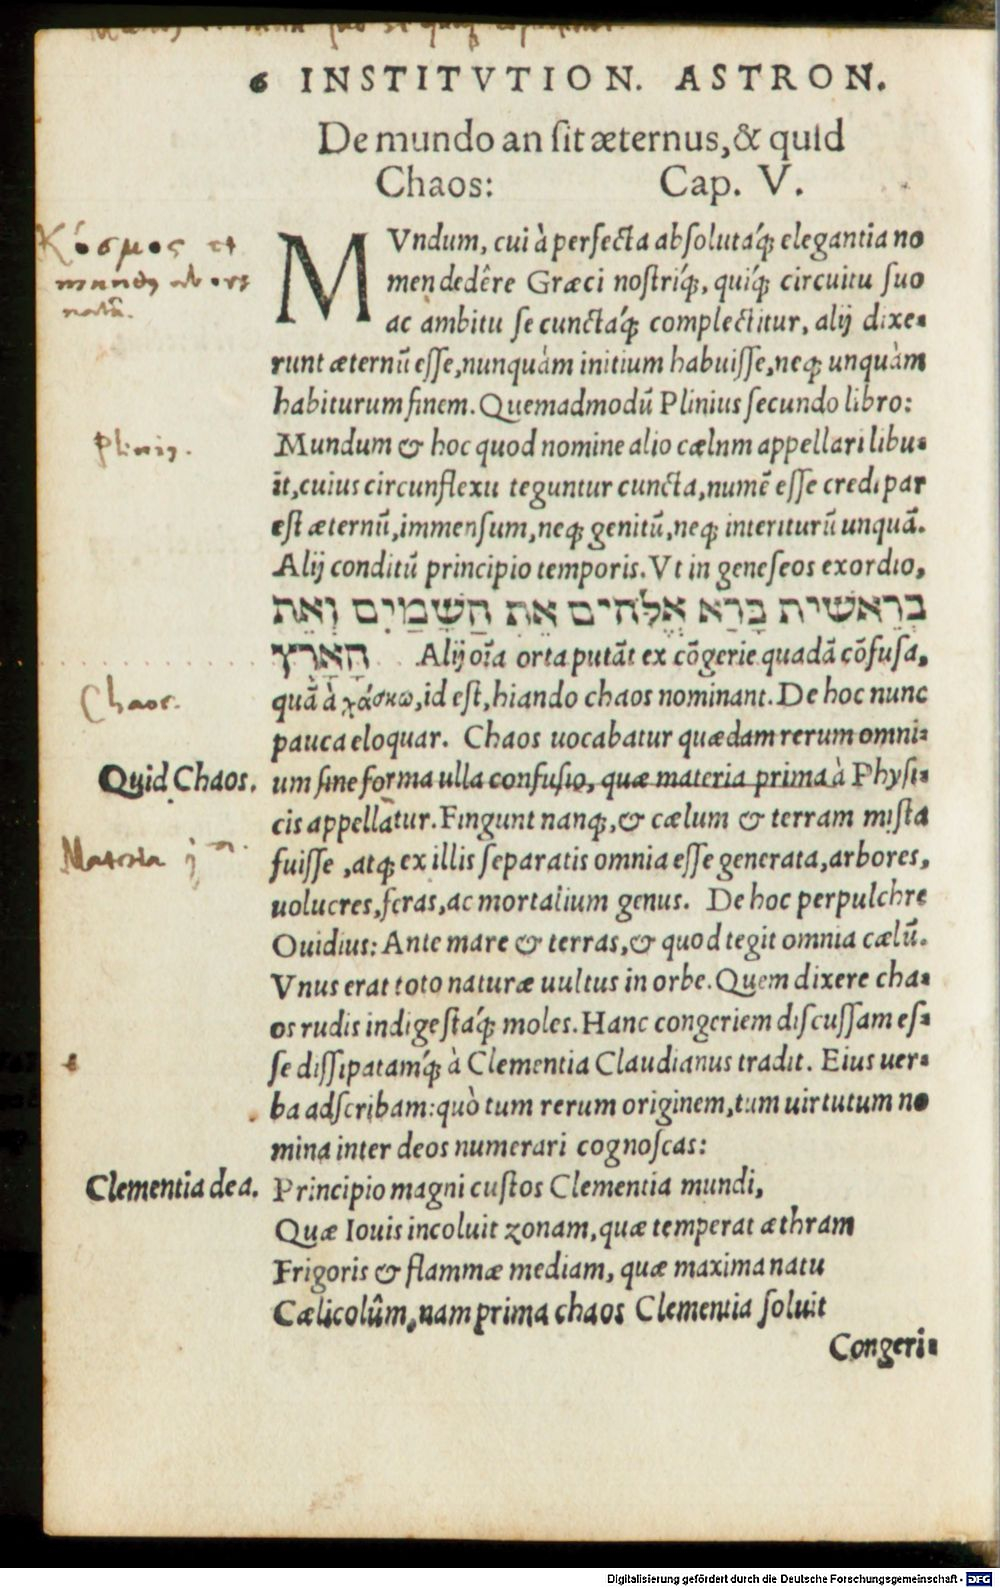 6 INSTITVTION. ASTRON.
De mundo an ſit æternus, & quid
Chaos: Cap. V.
Κόσμος et
mundus ab or
natu.
MVndum, cui à perfecta abſolutaq́ꝫ elegantia no
men dedêre Græci noſtriq́ꝫ, quiq́ꝫ circuitu ſuo
ac ambitu ſe cunctaq́ꝫ complectitur, alij dixe-
runt æternũ eſſe, nunquàm initium habuiſſe, neqꝫ unquàm
habiturum finem. Quemadmodũ Plinius ſecundo libro:
Plinius.
Mundum & hoc quod nomine alio cælnm appellari libu-
it, cuius circunflexu teguntur cuncta, numẽ eſſe credi par
eſt æternũ, immenſum, neqꝫ genitũ, neqꝫ interiturũ unquã.
Alij conditũ principio temporis. Vt in geneſeos exordio,
בְרֵאשׁית בָרַא אֱלֹהים אֵת הַשָמַיִם וְאֵת
הָאָרֶץ Alij oĩa orta putãt ex cõgerie quadã cõfuſa,
Chaos.
quã à χάσκω, id eſt, hiando chaos nominant. De hoc nunc
pauca eloquar. Chaos uocabatur quædam rerum omni-
Quid Chaos.
um ſine forma ulla confuſio, quæ materia prima à Phyſi-
cis appellatur. Fingunt nanqꝫ, & cælum & terram miſta
Materia j a.
fuiſſe, atqꝫ ex illis ſeparatis omnia eſſe generata, arbores,
uolucres, feras, ac mortalium genus. De hoc perpulchre
Ouidius: Ante mare & terras, & quod tegit omnia cælũ.
Vnus erat toto naturæ uultus in orbe. Quem dixere cha-
os rudis indigeſtaq́ꝫ moles. Hanc congeriem diſcuſſam eſ-
ſe diſſipatamq́ꝫ à Clementia Claudianus tradit. Eius uer-
ba adſcribam: quò tum rerum originem, tum uirtutum no
mina inter deos numerari cognoſcas:
Clementia dea.
Principio magni cuſtos Clementia mundi,
Quæ Iouis incoluit zonam, quæ temperat æthram
Frigoris & flammæ mediam, quæ maxima natu
Cælicolûm, nam prima chaos Clementia ſoluit
Congeri-
Digitalisierung gefördert durch die Deutsche Forschungsgemeinschaft - DFG